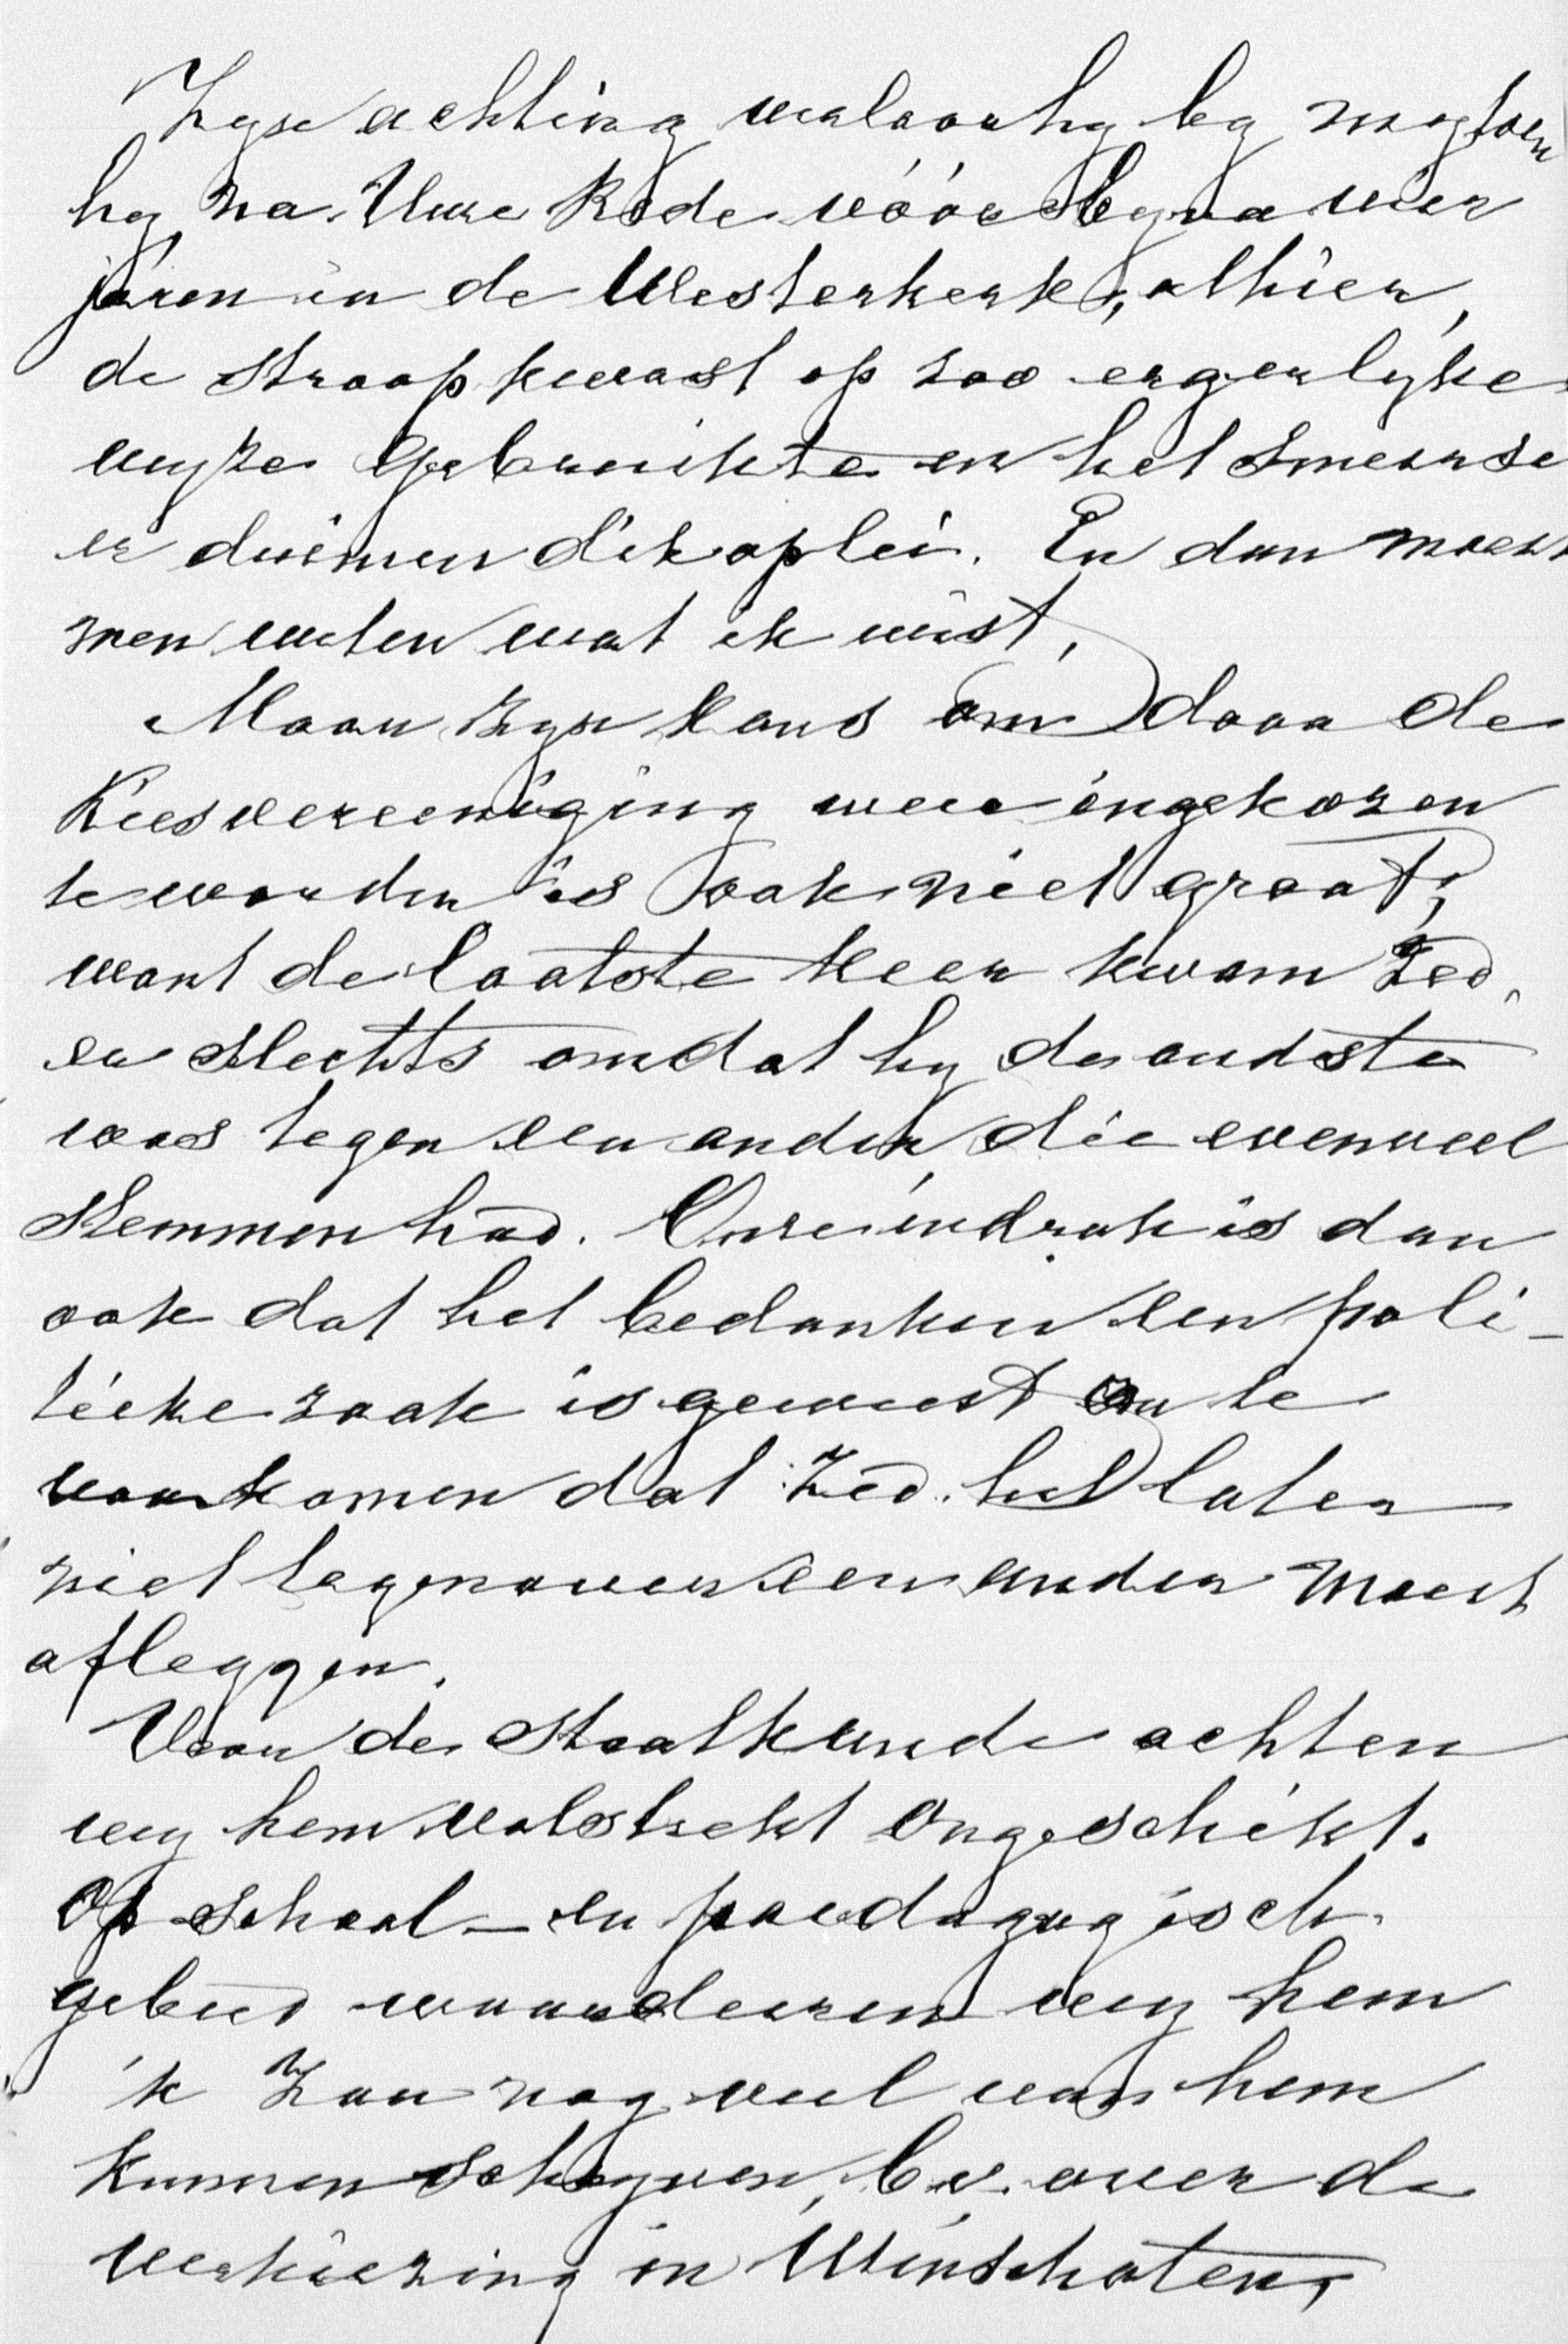 Zyn achting verloor hy by my toen
hy na Uwe Rede vóór byna vier
jaren in de Westerkerk, alhier,
de stroopkwast op zoo ergerlyke
wyze gebruikte en het smeersel
er duimen dik oplei. En dan moest
men weten wat ik wist.
Maar zyn kans om door de
Kiesvereeniging weer ingekozen
te worden is ook niet groot;
want de laatste keer kwam ZEd.
er slechts omdat hy de oudste
was tegen een ander, die evenveel
stemmen had. Onze indruk is dan
ook dat het bedanken een poli-
tieke zaak is geweest om te
voorkomen dat ZEd. het later
niet tegenover een ander moest
afleggen.
Voor de staatkunde achten
wy hem volstrekt ongeschikt.
Op school- en paedagogisch
gebied waardeeren wy hem
'k Zou nog veel van hem
kunnen schryven, b.v. over de
verkiezing in Winschoten,